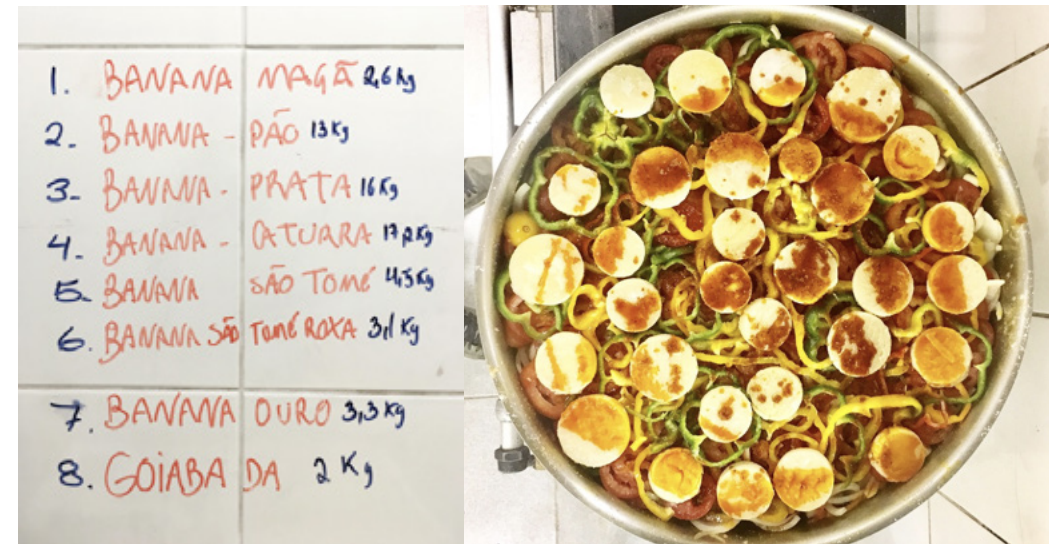 1. BANANA MAGÃ 2,6 Kg
2. BANANA - PÃO 13 Kg
3- BANANA - PRATA 16 Kg
4. BANANA - CATURRA 17,2 Kg
5. BANANA SÃO TOMÉ 4,5 Kg
6. BANANA SÃO TOMÉ ROXA 3,1 Kg
7. BANANA OURO 3,3 Kg
8. GOIABADA 2 Kg